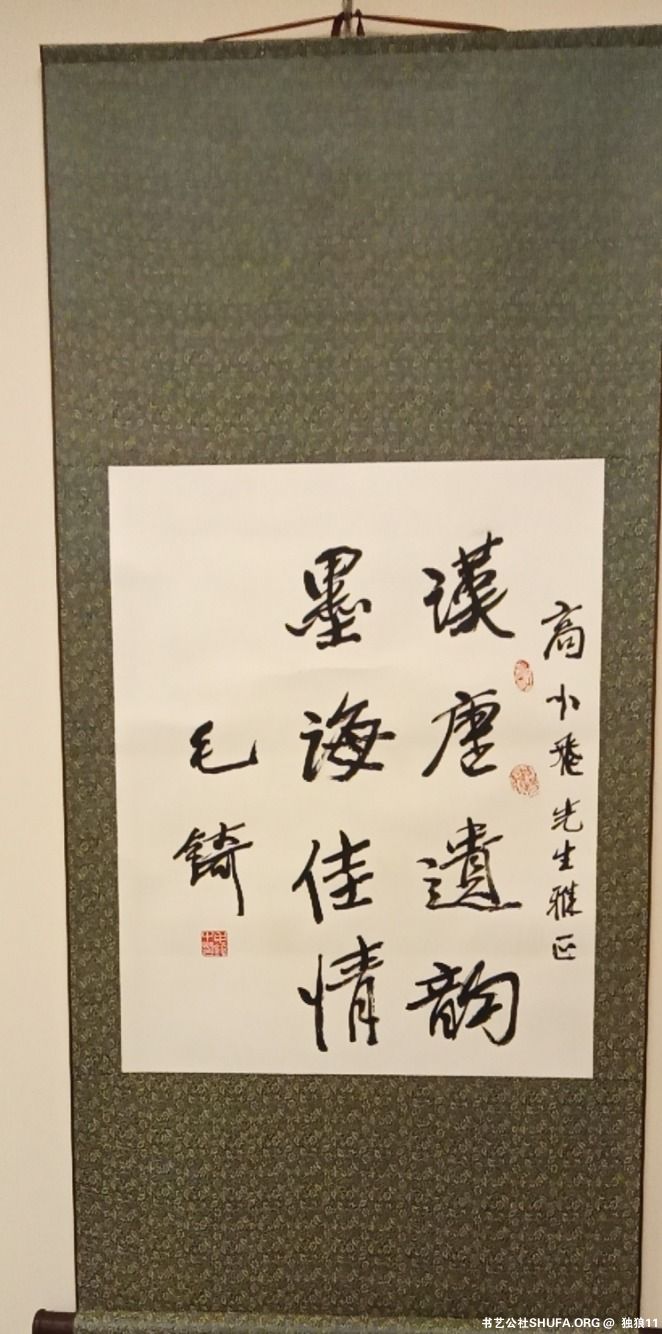 高小飛先生雅正
漢唐遺韵
墨海佳情
毛錡
书艺公社SHUFA.ORG @ 独狼11